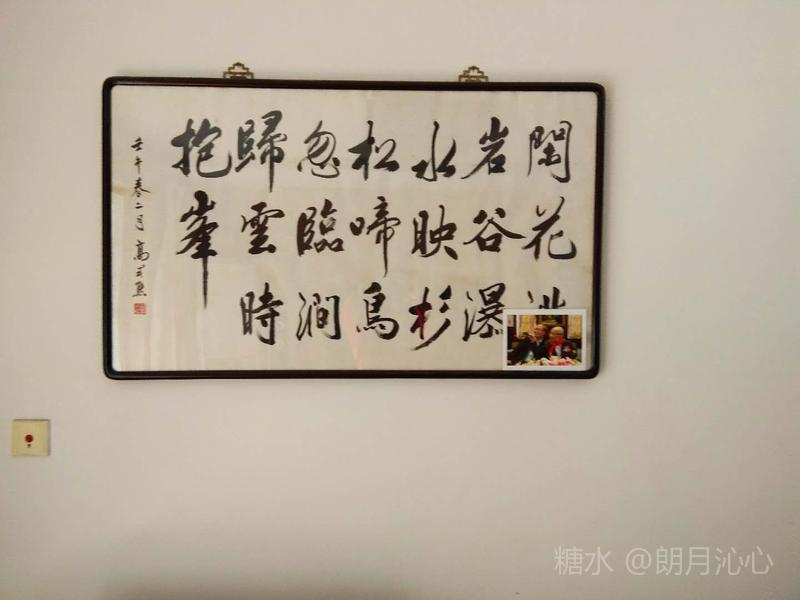 閑花
岩谷瀑
水映杉
松啼鳥
忽臨澗
歸雲時
抱峯
壬午春二月 高式熊
糖水 @朗月沁心